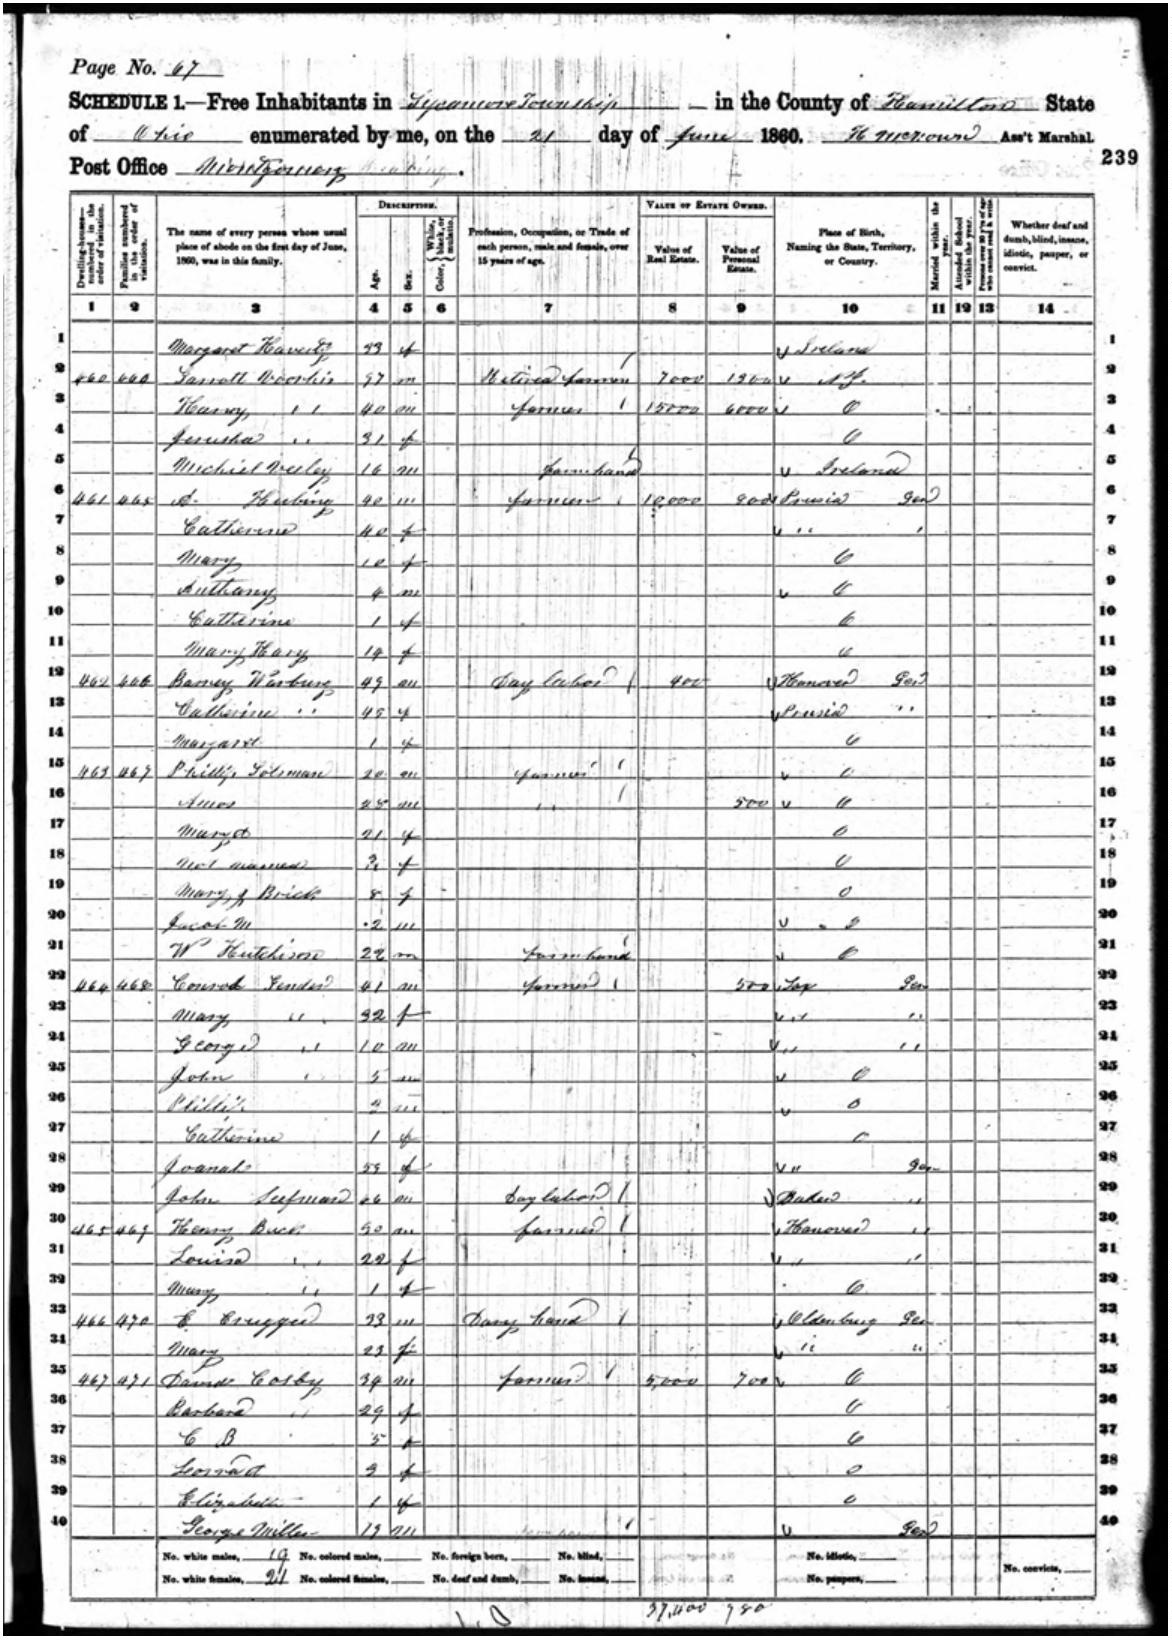 Page No. 67
SCHEDULE 1.—Free Inhabitants in Sycamore Township in the County of Hamilton State
of Ohio enumerated by me, on the 21 day of June 1860. Ass't Marshal.
239
Post Office Montgomery
DESCRIPTION. VALUE OF ESTATE OWNED.
Dwelling-houses—numbered in the order of visitation. Families numbered in the order of visitation. The name of every person whose usual place of abode on the first day of June, 1860, was in this family. Age. Sex. Color, White, black, or mulatto. Profession, Occupation, or Trade of each person, male and female, over 15 years of age. Value of Real Estate. Value of Personal Estate. Place of Birth, Naming the State, Territory, or Country. Married within the year. Attended School within the year. Persons over 20 y'rs of age who cannot read & write. Whether deaf and dumb, blind, insane, idiotic, pauper, or convict.
1 2 3 4 5 6 7 8 9 10 11 12 13 14
1 Margaret 33 f Ireland 1
2 Voorhis m Retired farmer 7000 N J. 2
3 Harvey " 40 m farmer 15000 6000 O 3
4 Jerusha " 31 f O 4
5 Michiel 16 m farmhand Ireland 5
6 461 465 m farmer 10,000 Prusia Ger 6
7 Catherine 40 f " " 7
8 Mary 10 f O 8
9 Anthany 4 m O 9
10 Catherine 1 f O 10
11 Mary 14 f O 11
12 462 466 Barney 49 m Day labor 400 Hanover Ger 12
13 Catherine " 45 f Prusia " 13
14 Margaret 1 f O 14
15 463 467 Phillip 20 m farmer O 15
16 Amos m " 500 O 16
17 Mary A 21 f O 17
18 Not named f O 18
19 Mary J Brick 8 f O 19
20 Jacob M 2 m O 20
21 W Hutchison 22 m farmhand O 21
22 464 468 Conrod 41 m farmer 500 Ger 22
23 Mary " 32 f " " 23
24 George " 10 m " " 24
25 John " 5 m O 25
26 Phillip 3 m O 26
27 Catherine 1 f O 27
28 f " Ger 28
29 John 66 m Day labor Baden " 29
30 465 469 Henry Buck m farmer Hanover " 30
31 Louisa " 22 f " " 31
32 Mary " 1 f O 32
33 466 470 E 33 m hand Oldenburg Ger 33
34 Mary 23 f " " 34
35 467 471 David Cosby 34 m farmer 5,000 700 O 35
36 Barbara " 29 f O 36
37 C B 5 f O 37
38 3 f O 38
39 Elizabeth 1 f O 39
40 George Miller 19 m Ger 40
No. white males, 19 No. colored males, No. foreign born, No. blind, No. idiotic,
No. white females, 21 No. colored females, No. deaf and dumb, No. insane, No. paupers, No. convicts,
37,400